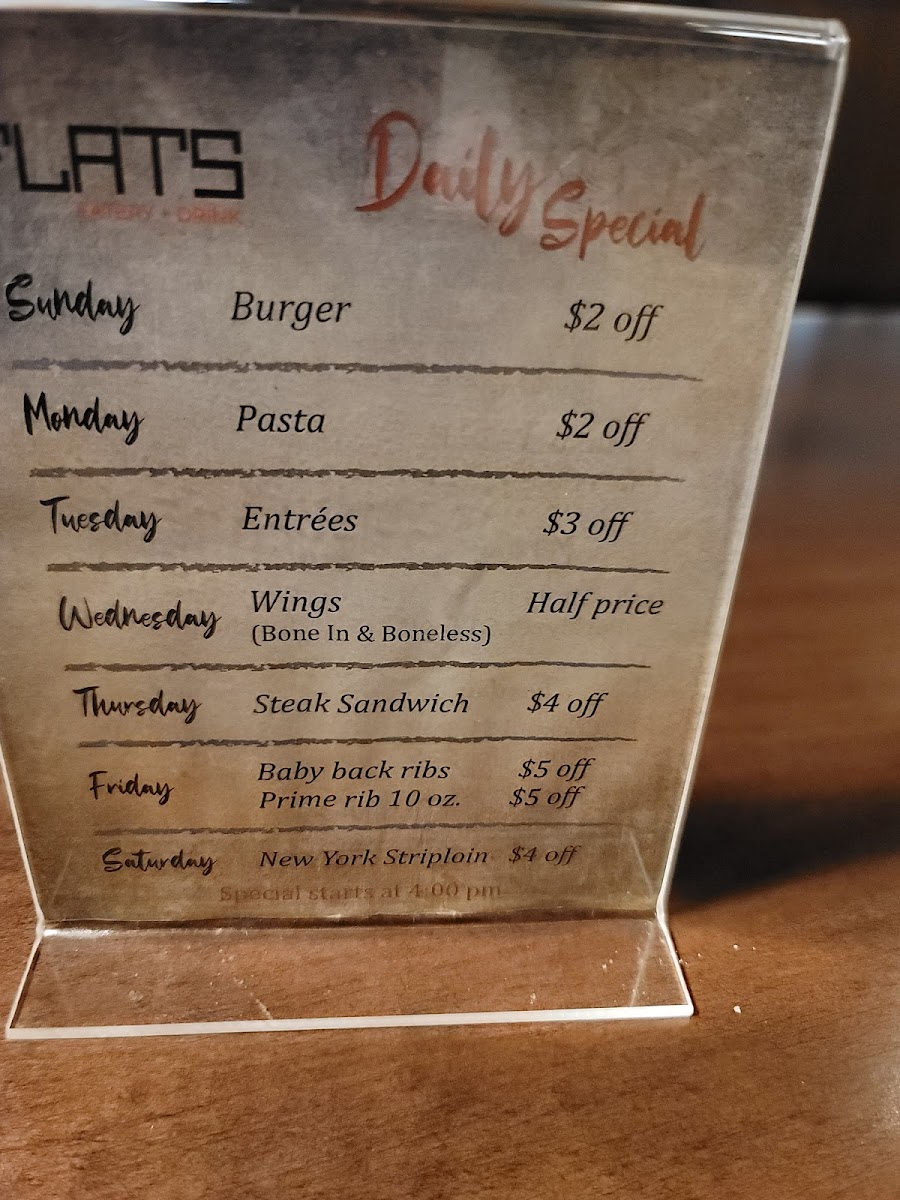 FLATS
EATERY + DRINK
Daily Special
Sunday Burger $2 off
Monday Pasta $2 off
Tuesday Entrées $3 off
Wednesday Wings Half price
(Bone In & Boneless)
Thursday Steak Sandwich $4 off
Friday Baby back ribs $5 off
Prime rib 10 oz. $5 off
Saturday New York Striploin $4 off
Special starts at 4:00 pm